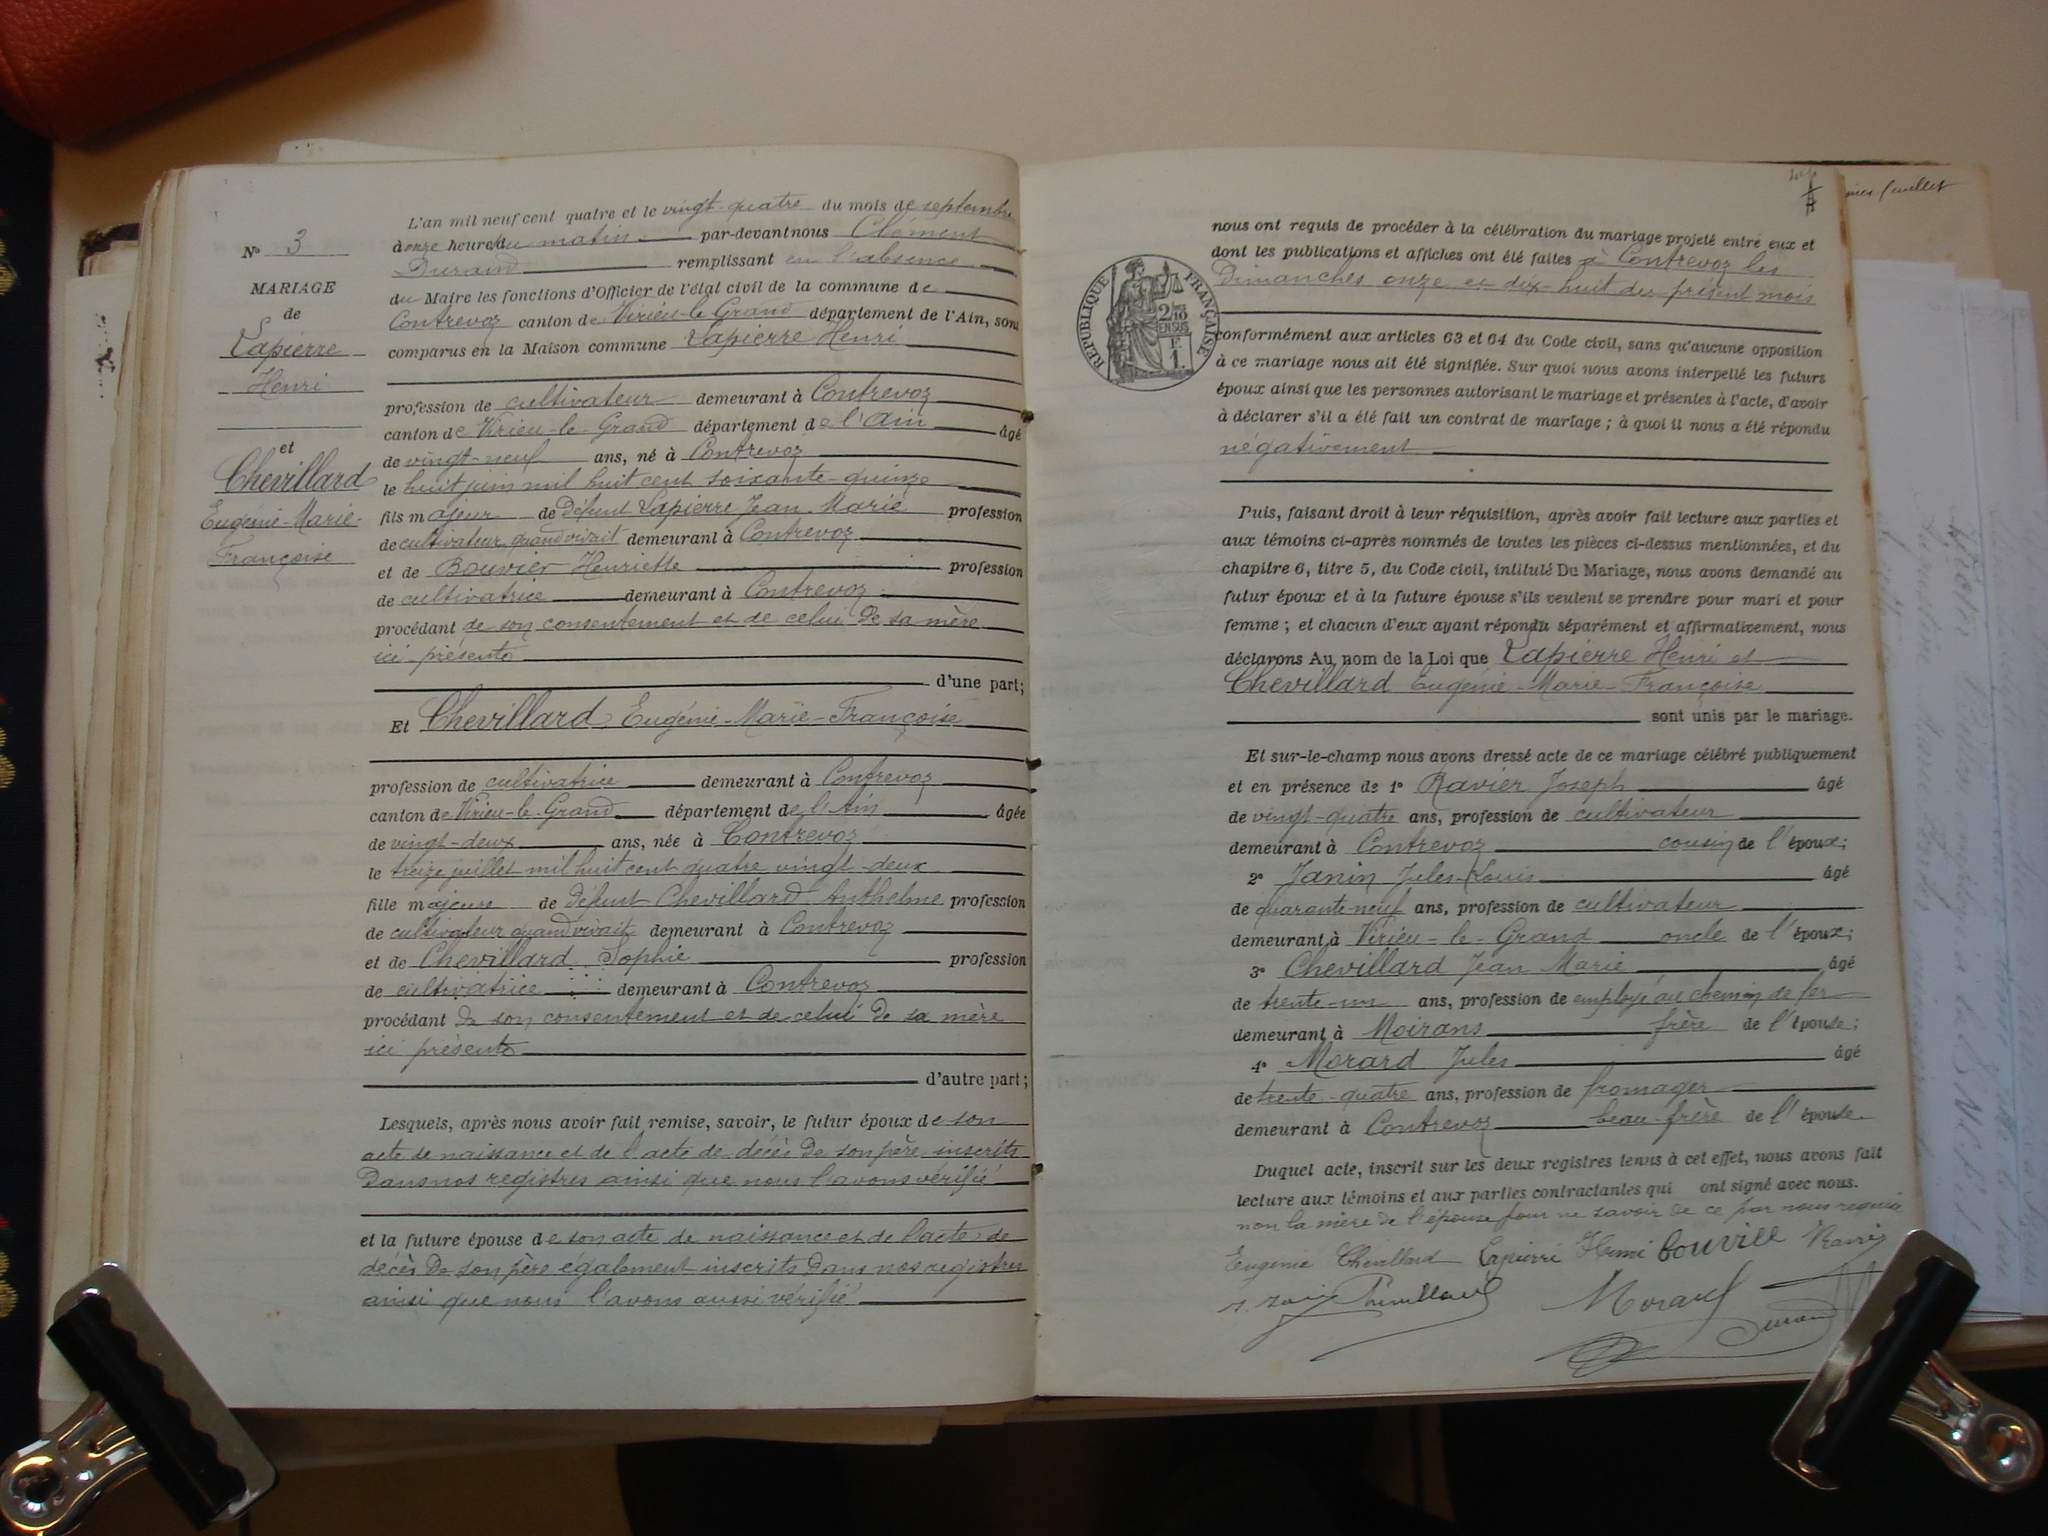 N° 3
MARIAGE
de
Lapierre
Henri
et
Chevillard
Eugénie-Marie-
Françoise
L'an mil neuf cent quatre et le vingt-quatre du mois de septembre
à onze heures du matin par-devant nous Clément
Durand remplissant en l'absence
du Maire les fonctions d'Officier de l'état civil de la commune de
Contrevoz canton de Virieu-le-Grand département de l'Ain, sont
comparus en la Maison commune Lapierre Henri
profession de cultivateur demeurant à Contrevoz
canton de Virieu-le-Grand département de l'Ain âgé
de vingt-neuf ans, né à Contrevoz
le huit juin mil huit cent soixante-quinze
fils majeur de défunt Lapierre Jean Marie profession
de cultivateur quand vivait demeurant à Contrevoz
et de Bouvier Henriette profession
de cultivatrice demeurant à Contrevoz
procédant de son consentement et de celui de sa mère
ici présente
d'une part;
Et Chevillard Eugénie-Marie-Françoise
profession de cultivatrice demeurant à Contrevoz
canton de Virieu-le-Grand département de l'Ain âgée
de vingt-deux ans, née à Contrevoz
le treize juillet mil huit cent quatre vingt-deux
fille majeure de défunt Chevillard Anthelme profession
de cultivateur quand vivait demeurant à Contrevoz
et de Chevillard Sophie profession
de cultivatrice demeurant à Contrevoz
procédant de son consentement et de celui de sa mère
ici présente
d'autre part;
Lesquels, après nous avoir fait remise, savoir, le futur époux de son
acte de naissance et de l'acte de décès de son père inscrits
dans nos registres ainsi que nous l'avons vérifié
et la future épouse de son acte de naissance et de l'acte de
décès de son père également inscrits dans nos registres
ainsi que nous l'avons aussi vérifié
nier feuillet
nous ont requis de procéder à la célébration du mariage projeté entre eux et
dont les publications et affiches ont été faites à Contrevoz les
Dimanches onze et dix-huit du présent mois
RÉPUBLIQUE FRANÇAISE
2/10
EN SUS
F.
1.
conformément aux articles 63 et 64 du Code civil, sans qu'aucune opposition
à ce mariage nous ait été signifiée. Sur quoi nous avons interpellé les futurs
époux ainsi que les personnes autorisant le mariage et présentes à l'acte, d'avoir
à déclarer s'il a été fait un contrat de mariage; à quoi il nous a été répondu
négativement
Puis, faisant droit à leur réquisition, après avoir fait lecture aux parties et
aux témoins ci-après nommés de toutes les pièces ci-dessus mentionnées, et du
chapitre 6, titre 5, du Code civil, intitulé Du Mariage, nous avons demandé au
futur époux et à la future épouse s'ils veulent se prendre pour mari et pour
femme; et chacun d'eux ayant répondu séparément et affirmativement, nous
déclarons Au nom de la Loi que Lapierre Henri et
Chevillard Eugénie-Marie-Françoise
sont unis par le mariage.
Et sur-le-champ nous avons dressé acte de ce mariage célébré publiquement
et en présence de 1° Ravier Joseph âgé
de vingt-quatre ans, profession de cultivateur
demeurant à Contrevoz cousin de l'époux;
2° Janin Jules-Louis âgé
de quarante-neuf ans, profession de cultivateur
demeurant à Virieu-le-Grand oncle de l'époux;
3° Chevillard Jean Marie âgé
de trente-un ans, profession de employé au chemin de fer
demeurant à Moirans frère de l'épouse;
4° Morard Jules âgé
de trente-quatre ans, profession de fromager
demeurant à Contrevoz beau-frère de l'épouse.
Duquel acte, inscrit sur les deux registres tenus à cet effet, nous avons fait
lecture aux témoins et aux parties contractantes qui ont signé avec nous.
non la mère de l'épouse pour ne savoir de ce par nous requise
Eugénie Chevillard Lapierre Henri
Chevillard Morard
Durand